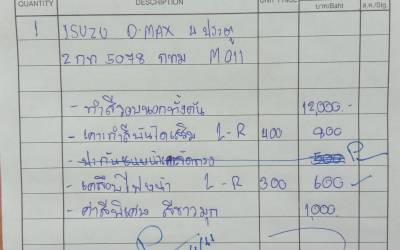 QUANTITY DESCRIPTION UNIT PRICE บาท/Baht ส.ต./Stg.
1 ISUZU D-MAX 4 ประตู
2 กท 5078 กทม M011
- ทำสีรอบนอกทั้งคัน 12,000.-
- เคาะทำสีบันไดเสริม L-R 400 800
500
- เคลือบไฟหน้า L-R 300 600
- ค่าสีพิเศษ สีขาวมุก 1,000